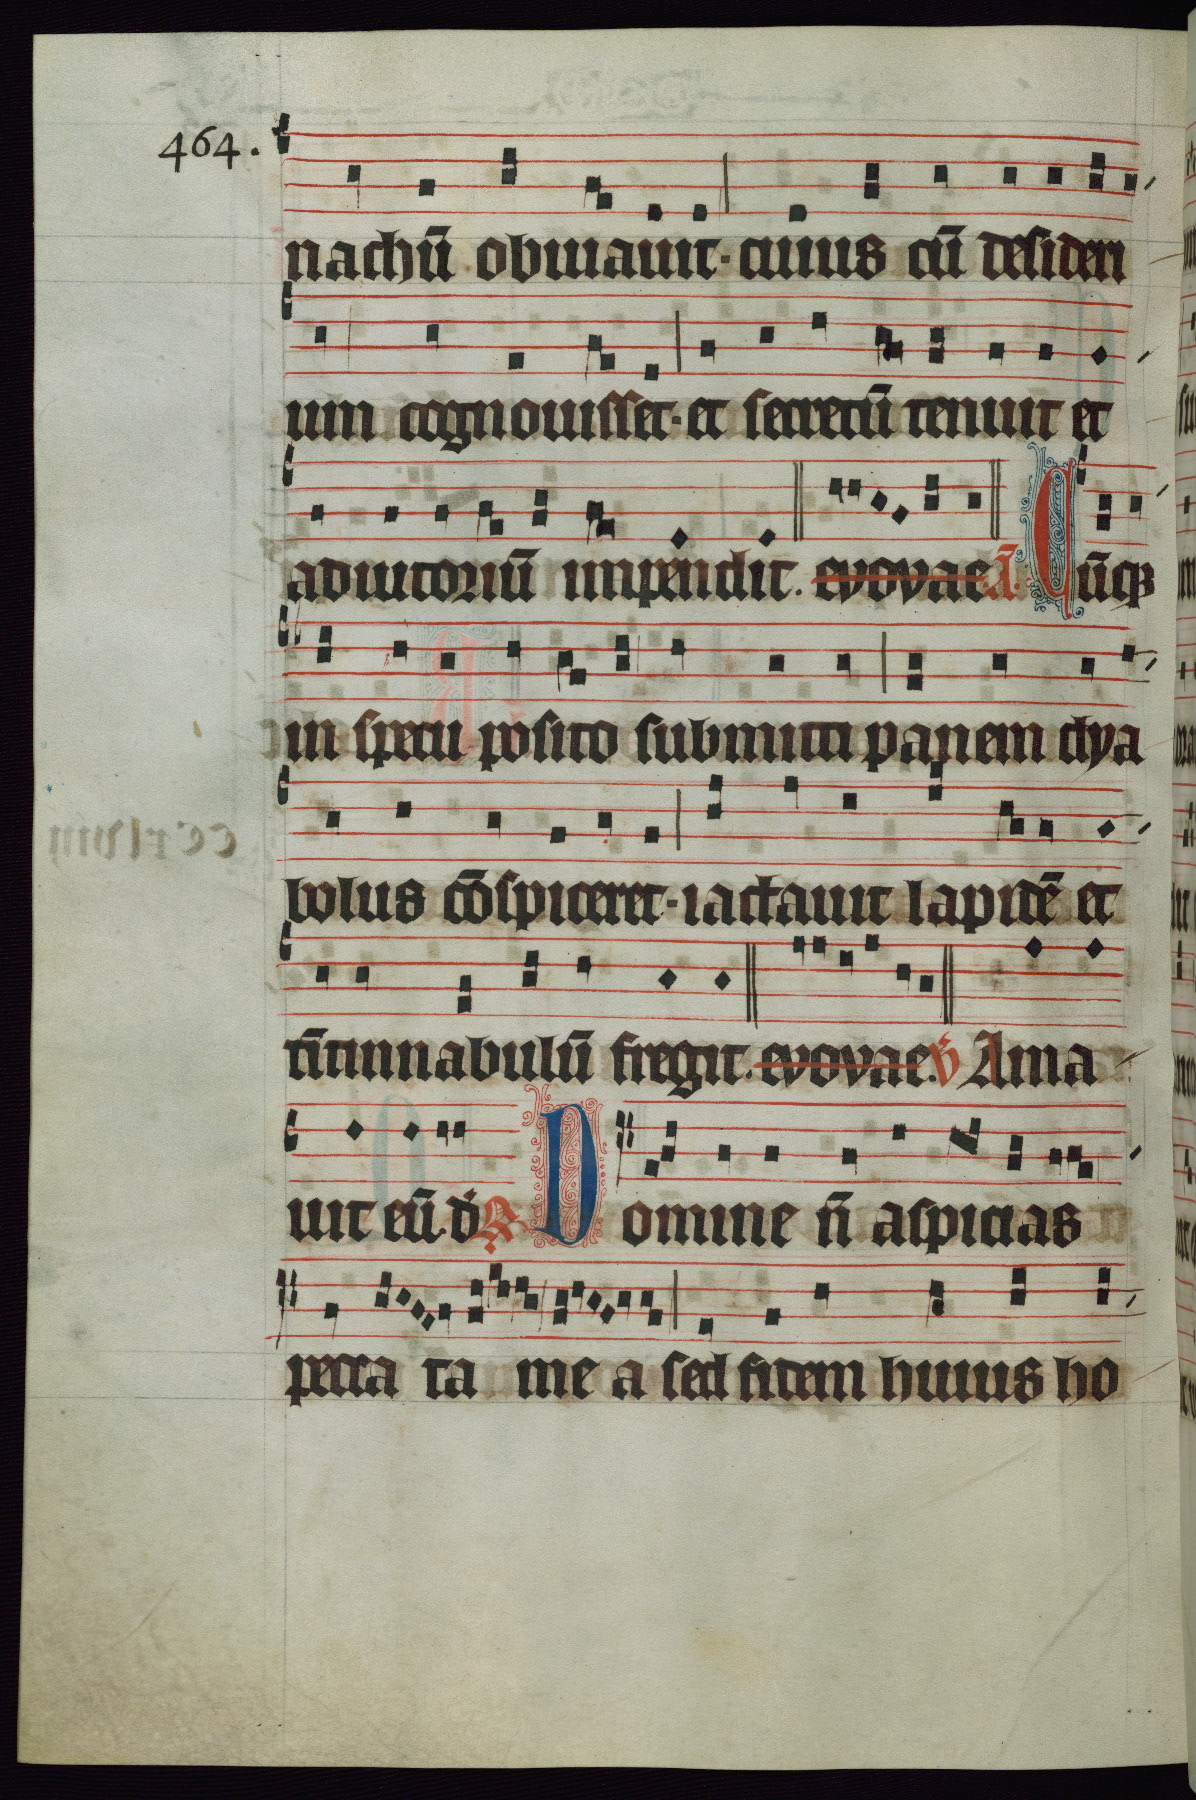 464.
nachū obuiauit · cuius cū desideri
um cognouisset · et secretū tenuit et
adiutoriū impendit. evovae ā. Cūqꝫ
in specu posito submitti panem dya
bolus cōspiceret · iactauit lapidē et
tītinnabulū fregit. evovae. v̄ Ama
uit eū. d̄. R Domine n̄ aspicias
peccata mea sed fidem huius ho